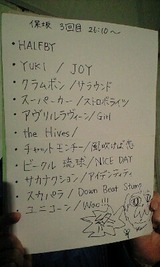 保坂 3回目 26:10〜
・HALFBY
・YUKI / JOY
・クラムボン / サラウンド
・スーパーカー / ストロボライツ
・アヴリルラヴィーン / Girl
・the Hives /
・チャットモンチー / 風吹けば恋
・ビークル 琉球 / NICE DAY
・サカナクション / アイデンティティ
・スカパラ / Down Beat Stomp
・ユニコーン / Woo!!!